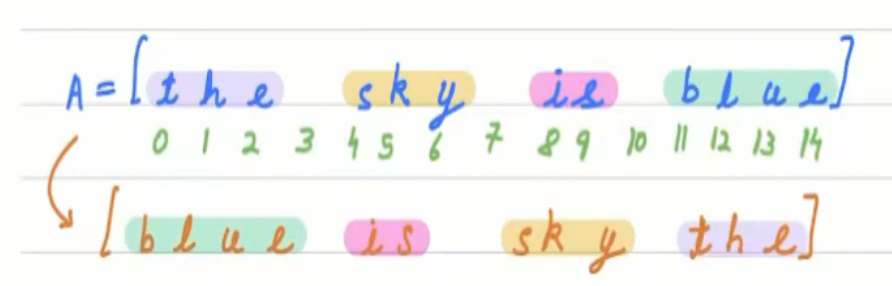 A = [ t h e   s k y   i s   b l u e ]
0 1 2 3 4 5 6 7 8 9 10 11 12 13 14
[ b l u e   i s   s k y   t h e ]